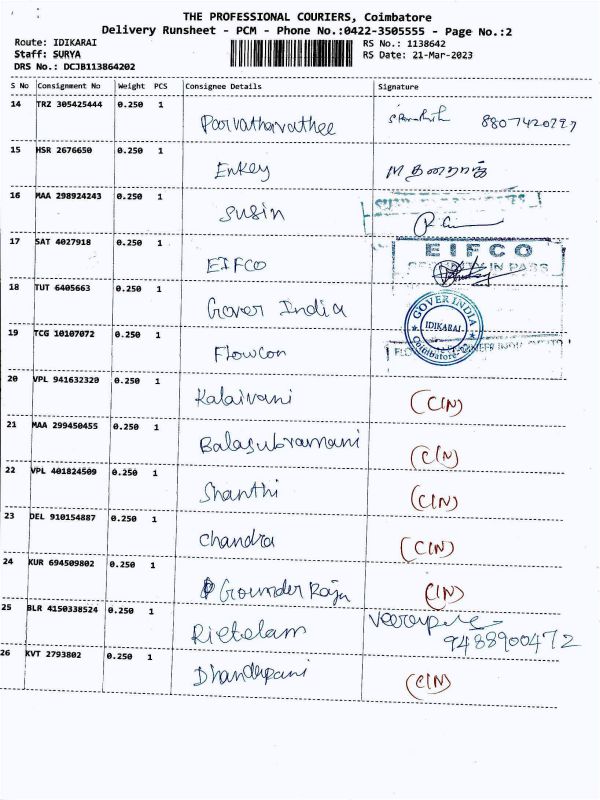 THE PROFESSIONAL COURIERS, Coimbatore
Delivery Runsheet - PCM - Phone No.:0422-3505555 - Page No.:2
Route: IDIKARAI RS No.: 1138642
Staff: SURYA RS Date: 21-Mar-2023
DRS No.: DCJB113864202
S No Consignment No Weight PCS Consignee Details Signature
14 TRZ 305425444 0.250 1 Poorvatharvathee
15 HSR 2676650 0.250 1 Enkey
16 MAA 298924243 0.250 1 Susin
17 SAT 4027918 0.250 1 EIFCO EIFCO IN PASS
18 TUT 6405663 0.250 1 Gover India GOVER INDIA IDIKARAI Coimbatore
19 TCG 10107072 0.250 1 Flowcon
20 VPL 941632320 0.250 1 Kalaivani (CIN)
21 MAA 299450455 0.250 1 Balasubramani (CIN)
22 VPL 401824509 0.250 1 Shanthi (CIN)
23 DEL 910154887 0.250 1 Chandra (CIN)
24 KUR 694509802 0.250 1 Gounder Raju (CIN)
25 BLR 4150338524 0.250 1 Rietelam 9488900472
26 KVT 2793802 0.250 1 Dhandapani (CIN)